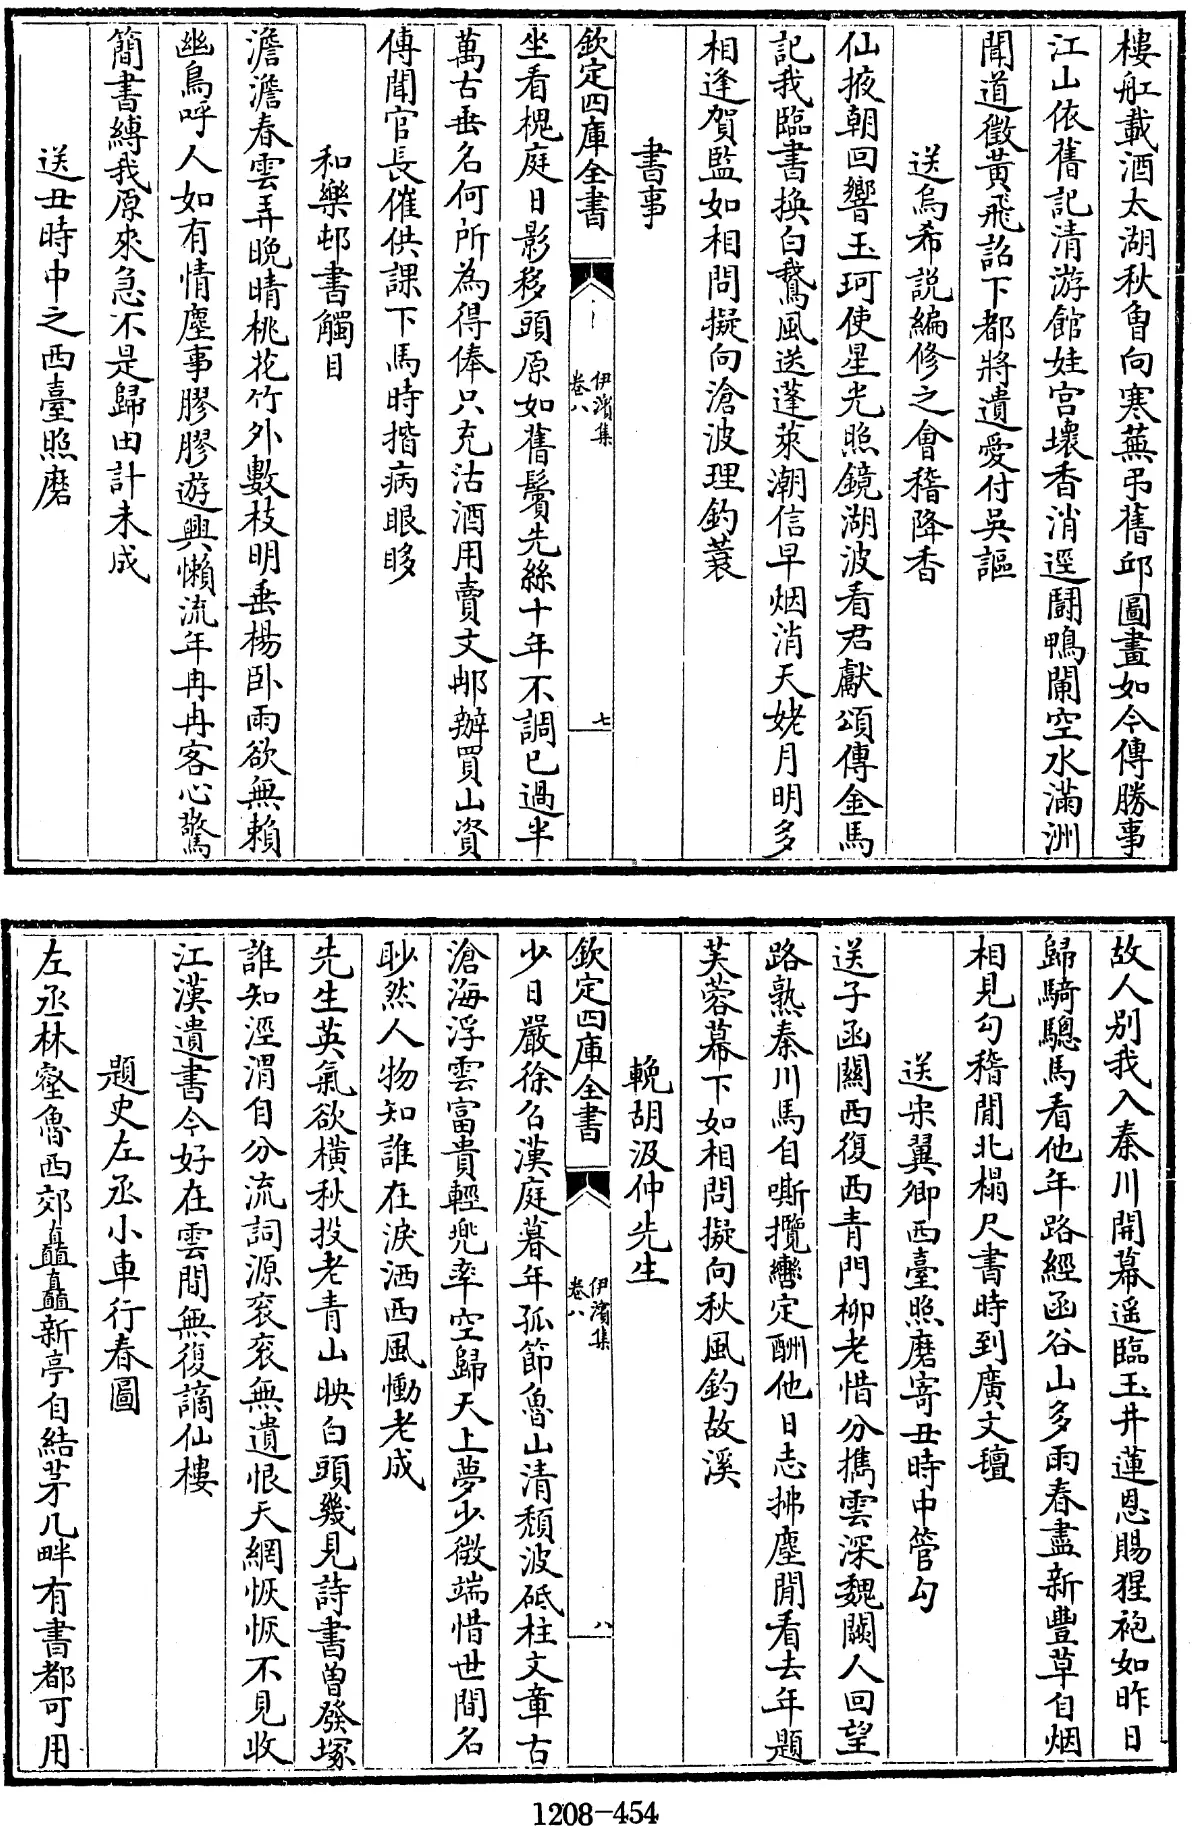 樓舡載酒太湖秋曾向寒蕪弔舊邱圖畫如今傳勝事
江山依舊記清游館娃宮壊香消逕鬭鴨闌空水滿洲
聞道徵黄飛詔下都將遺愛付吳謳
送烏希説編修之會稽降香
仙掖朝回響玉珂使星光照鏡湖波看君獻頌傳金馬
記我臨書換白鵞風送蓬萊潮信早烟消天姥月明多
相逢賀監如相問擬向滄波理釣蓑
書事
欽定四庫全書
伊濱集
卷八
七
坐看槐庭日影移頭原如舊鬢先絲十年不調已過半
萬古垂名何所為得俸只充沽酒用賣文郍辦買山資
傳聞官長催供課下馬時揩病眼眵
和樂邨書觸目
澹澹春雲弄晩晴桃花竹外數枝明垂楊卧雨欲無賴
幽鳥呼人如有情塵事膠膠遊興懶流年冉冉客心驚
簡書縛我原來急不是歸田計未成
送丑時中之西臺照磨
故人別我入秦川開幕遥臨玉井蓮恩賜猩袍如昨日
歸騎驄馬看他年路經函谷山多雨春盡新豐草自烟
相見勾稽閒北榻尺書時到廣文氊
送宋翼卿西臺照磨寄丑時中管勾
送子函關西復西青門柳老惜分攜雲深魏闕人回望
路熟秦川馬自嘶攬轡定酬他日志拂塵閒看去年題
芙蓉幕下如相問擬向秋風釣故溪
輓胡汲仲先生
欽定四庫全書
伊濱集
卷八
八
少日嚴徐召漢庭暮年孤節魯山清頹波砥柱文章古
滄海浮雲富貴輕兠率空歸天上夢少微端惜世間名
眇然人物知誰在淚洒西風慟老成
先生英氣欲橫秋投老青山映白頭幾見詩書曾發塚
誰知涇渭自分流詞源衮衮無遺恨天網恢恢不見收
江漢遺書今好在雲間無復謫仙樓
題史左丞小車行春圖
左丞林壑魯西郊矗矗新亭自結茅几畔有書都可用
1208-454